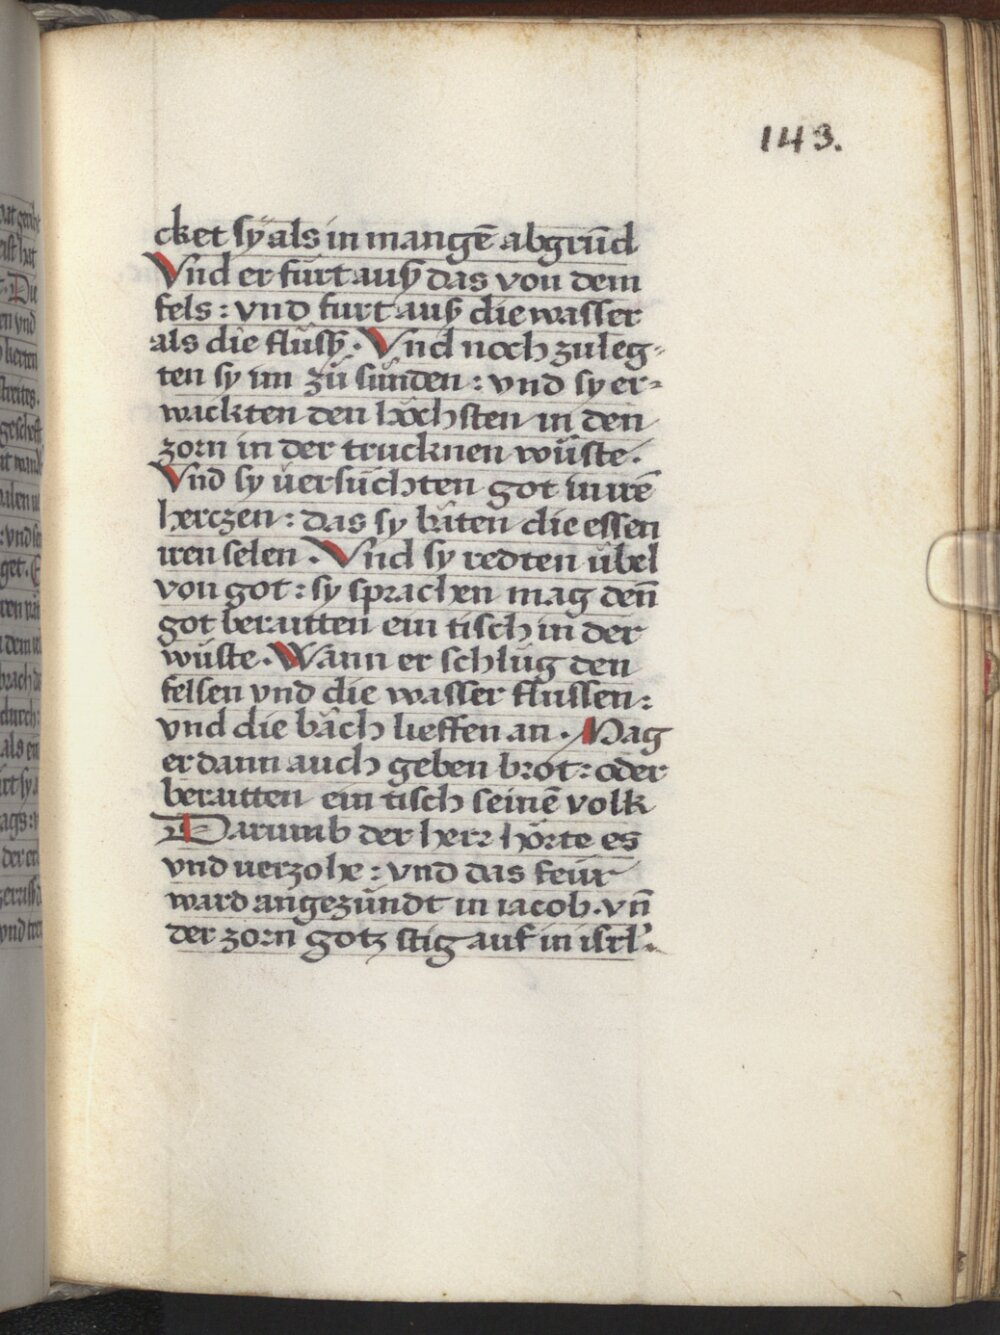 143.
cket sÿ als in mangē abgrūd
Vnd er fürt auß das von dem
fels : vnd furt auß die wasser
als die flüss . Vnd noch zuleg=
ten sy im zů sünden : vnd sy er=
wackten den höchsten in den
zorn in der trucknen wüste .
Vnd sy uersůchten got in irē
herczen : das sy båten die essen
iren selen . Vnd sy redten übel
von got : sy sprachen mag deñ
got beraitten ein tisch in der
wüste . Wann er schlůg den
felsen vnd die wasser flussen :
vnd die båch lieffen an . Mag
er dann auch geben brot : oder
beraitten ein tisch seinē volk
Darumb der herr hörte es
vnd uerzohe : vnd das feür
ward angezündt in iacob . vñ
der zorn gotz stig auf in isrl' .